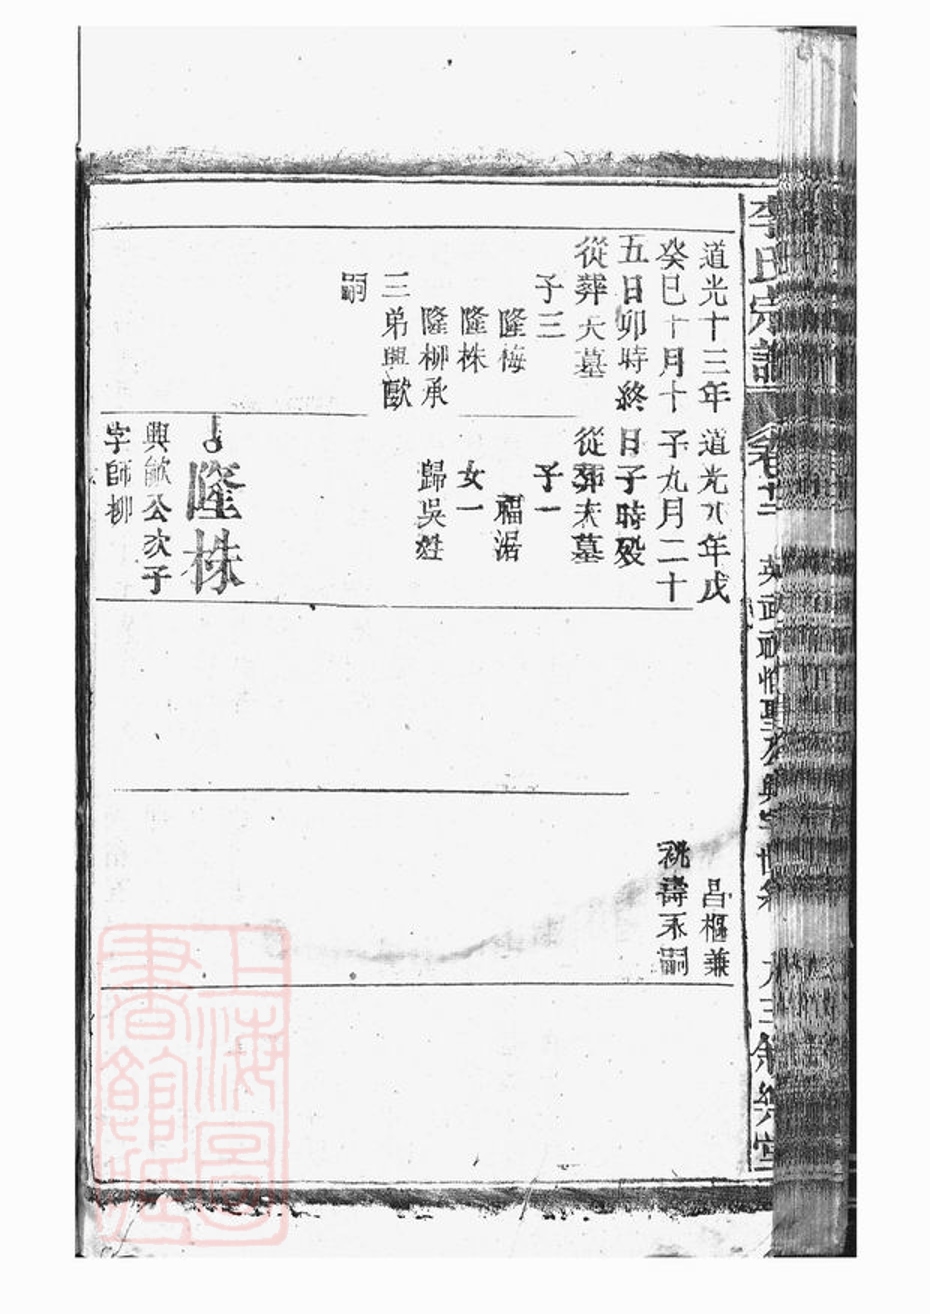 李氏宗譜
道光十三年
癸巳十月十
五日卯時終
從葬大墓
子三
隆梅
隆株
隆柳承
三弟興歐
嗣
道光八年戊
子九月二十
日子時歿
從葬大墓
子一
福湝
女一
歸吳姓
隆株
興歈公次子
字師柳
昌樞兼
祧壽承嗣
上海圖書館藏